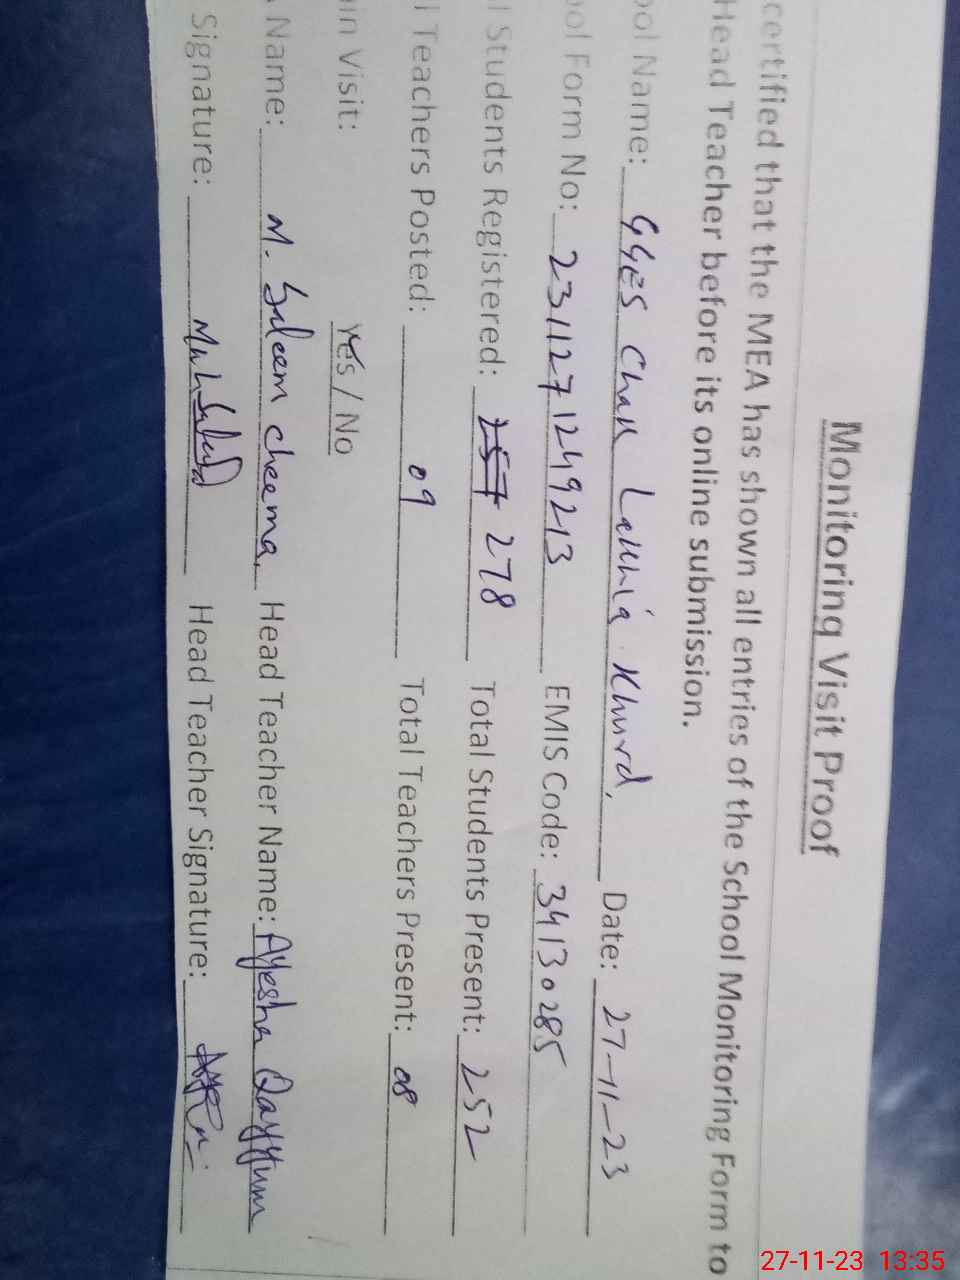 Monitoring Visit Proof
certified that the MEA has shown all entries of the School Monitoring Form to
Head Teacher before its online submission.
ool Name: GGES Chak Lakhia Khurd, Date: 27-11-23
ool Form No: 2311271249213 EMIS Code: 34130285
l Students Registered: 257 278 Total Students Present: 252
l Teachers Posted: 09 Total Teachers Present: 08
in Visit: Yes / No
Name: M. Saleem cheema, Head Teacher Name: Ayesha Qayyum
Signature: Head Teacher Signature:
27-11-23 13:35